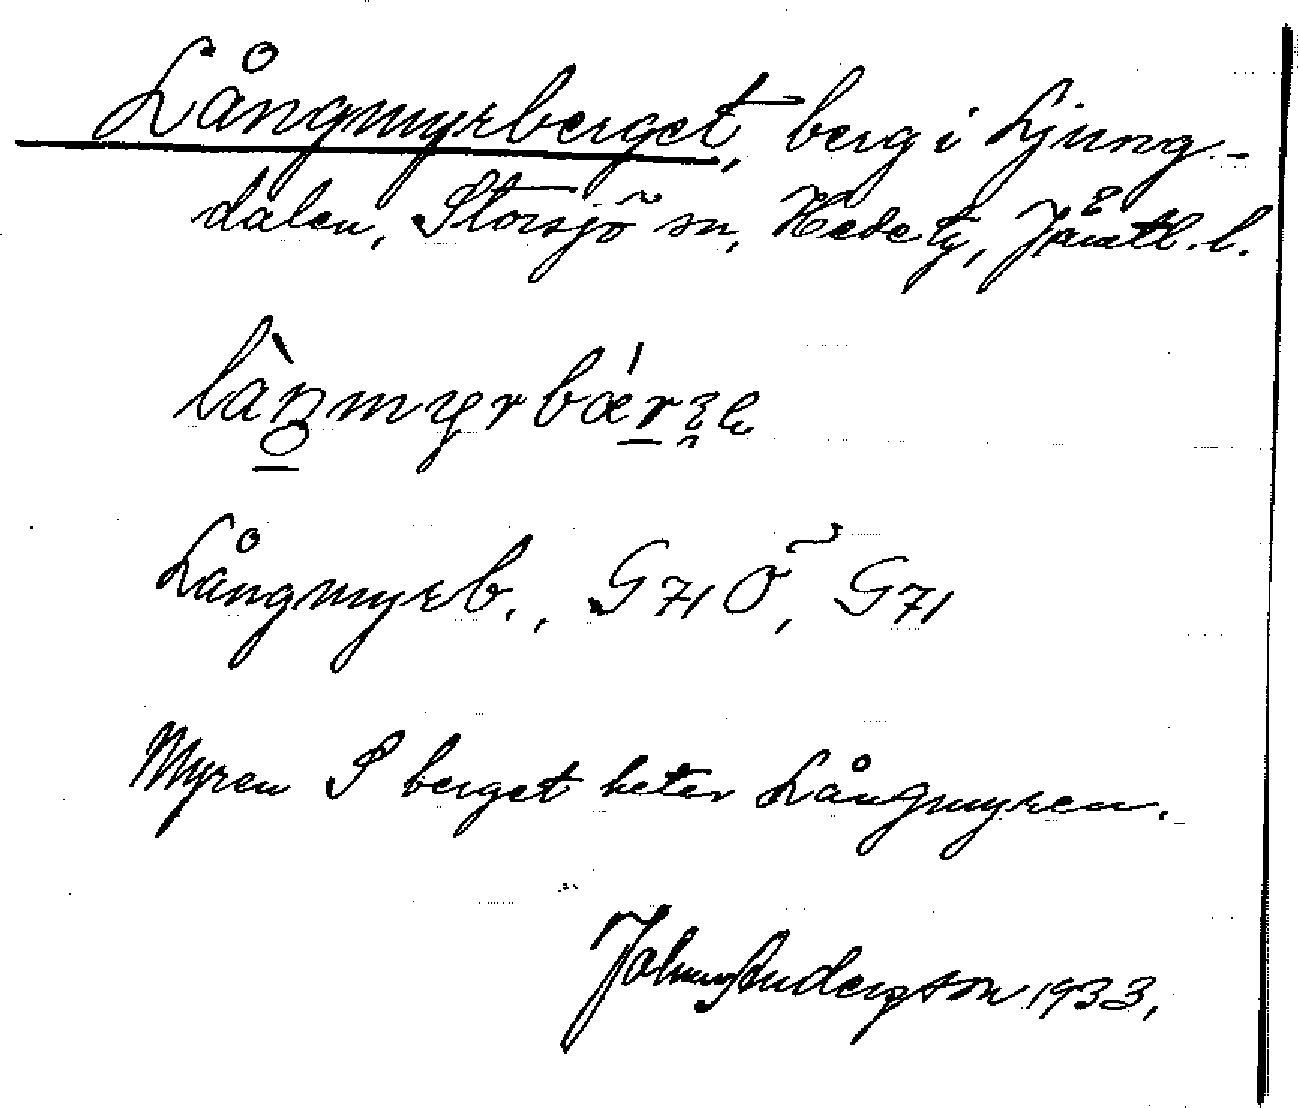 Långmyrberget, berg i Ljung-
dalen, Storsjö sn, Hede tg, Jämtl. l.
Långmyrb., G71Ö, G71
Myren S berget heter Långmyren.
Johannes Andersson 1933.